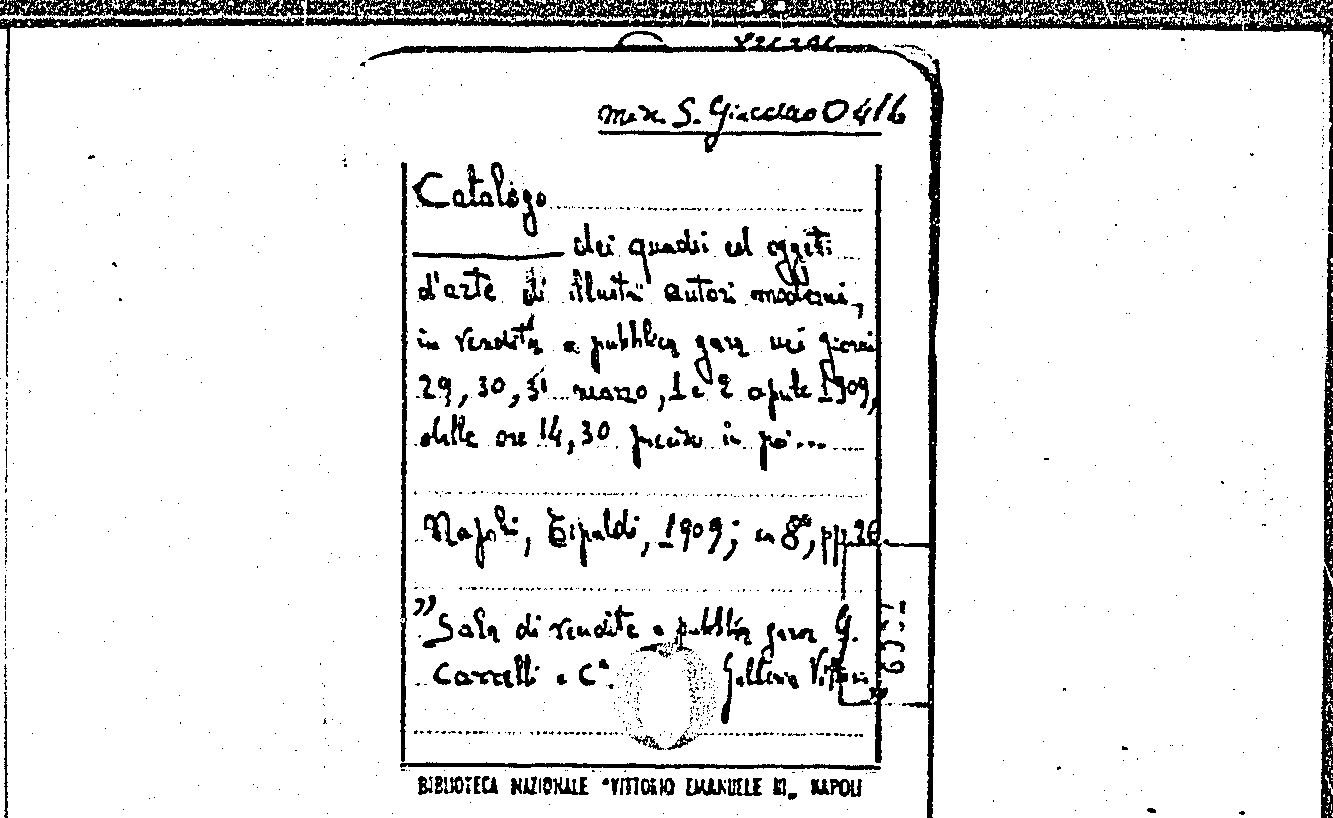 S. Giacomo O 4/6
Catalogo
dei quadri ed oggetti
d'arte di illustri autori moderni,
in vendita a pubblica gara nei giorni
29, 30, 31 marzo, 1 e 2 aprile 1909,
dalle ore 14,30 precise in poi...
Napoli, Tipaldi, 1909; in 8°, pp. 26
"Sala di vendite a pubblica gara G.
Carrelli e Cª. Galleria Vittoria"
BIBLIOTECA NAZIONALE "VITTORIO EMANUELE III„ NAPOLI